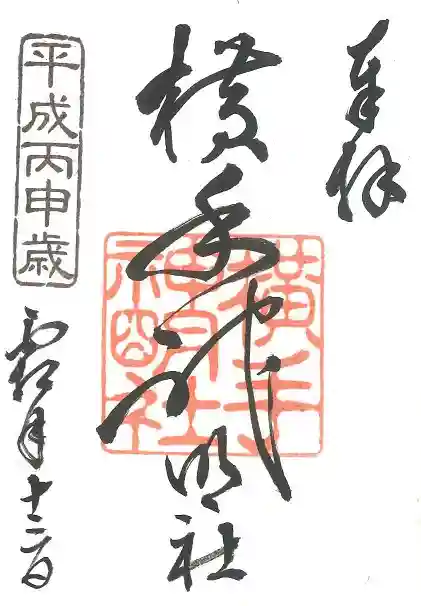 奉拝
横手神明社
橫手
神明社
平成丙申歳
霜月十二日